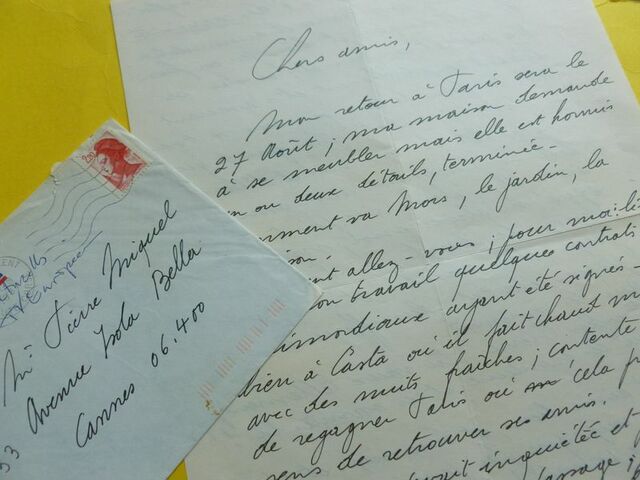 Chers amis,
Mon retour à Paris sera le
27 Août ; ma maison demande
à se meubler mais elle est hormis
un ou deux détails, terminée -
va Mors, le jardin, la
allez-vous ; pour moi
travail quelques contrats
ayant été signés -
bien à Casta où il fait chaud
avec des nuits fraîches ; contente
de regagner Paris où cela
de retrouver ses amis.
inquiétée et
2,20
Mr Pierre Miquel
33 Avenue Isola Bella
Cannes 06.400